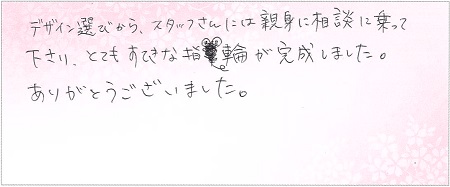 デザイン選びから、スタッフさんには親身に相談に乗って
下さり、とてもすてきな指輪が完成しました。
ありがとうございました。